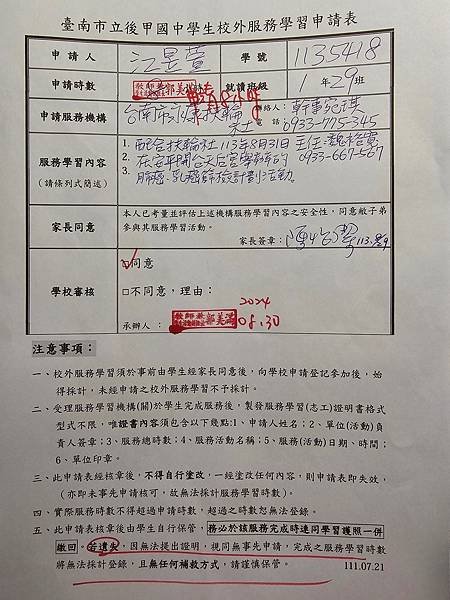 臺南市立後甲國中學生校外服務學習申請表
申請人 江昱萱 學號 1135418
申請時數 小時 就讀班級 1年29班
申請服務機構 台南市永康扶輪社 聯絡人: 幹事宛琪
電話 0933-775-345
服務學習內容
(請條列式簡述)
1. 配合扶輪社113年8月31日 主任:魏裕寬
2. 在安平開台天后宮舉辦的 0933-667-567
3. 肺癌、乳癌篩檢計劃活動。
家長同意
本人已考量並評估上述機構服務學習內容之安全性,同意敝子弟
參與其服務學習活動。
家長簽章: 113.8.29
學校審核
☑同意
□不同意,理由:
承辦人: 郭美滿 2024
08.30
注意事項:
一、校外服務學習須於事前由學生經家長同意後,向學校申請登記參加後,始
得採計,未經申請之校外服務學習不予採計。
二、受理服務學習機構(關)於學生完成服務後,製發服務學習(志工)證明書格式
型式不限,唯證書內容須包含以下幾點:1、申請人姓名;2、單位(活動)負
責人簽章;3、服務總時數;4、服務活動名稱;5、服務(活動)日期、時間;
6、單位印章。
三、此申請表經核章後,不得自行塗改,一經塗改任何內容,則申請表即失效,
(亦即未事先申請核可,故無法採計服務學習時數)。
四、實際服務時數不得超過申請時數,超過之時數恕無法登錄。
五、此申請表核章後由學生自行保管,務必於該服務完成時連同學習護照一併
繳回,若遺失,因無法提出證明,視同無事先申請,完成之服務學習時數
將無法採計登錄,且無任何補救方式,請謹慎保管。 111.07.21